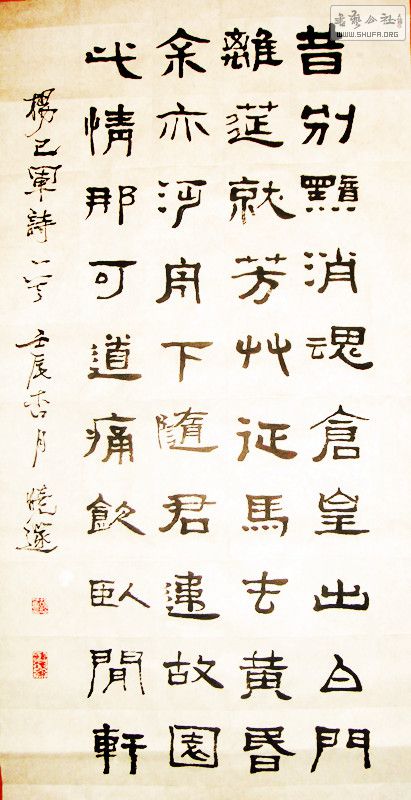 書藝公社
WWW.SHUFA.ORG
昔別黯消魂倉皇出白門
離莚就芳艸征馬去黃昏
余亦下隨君違故園
此情那可道痛飲臥閒軒
楊巳軍詩一首 壬辰杏月